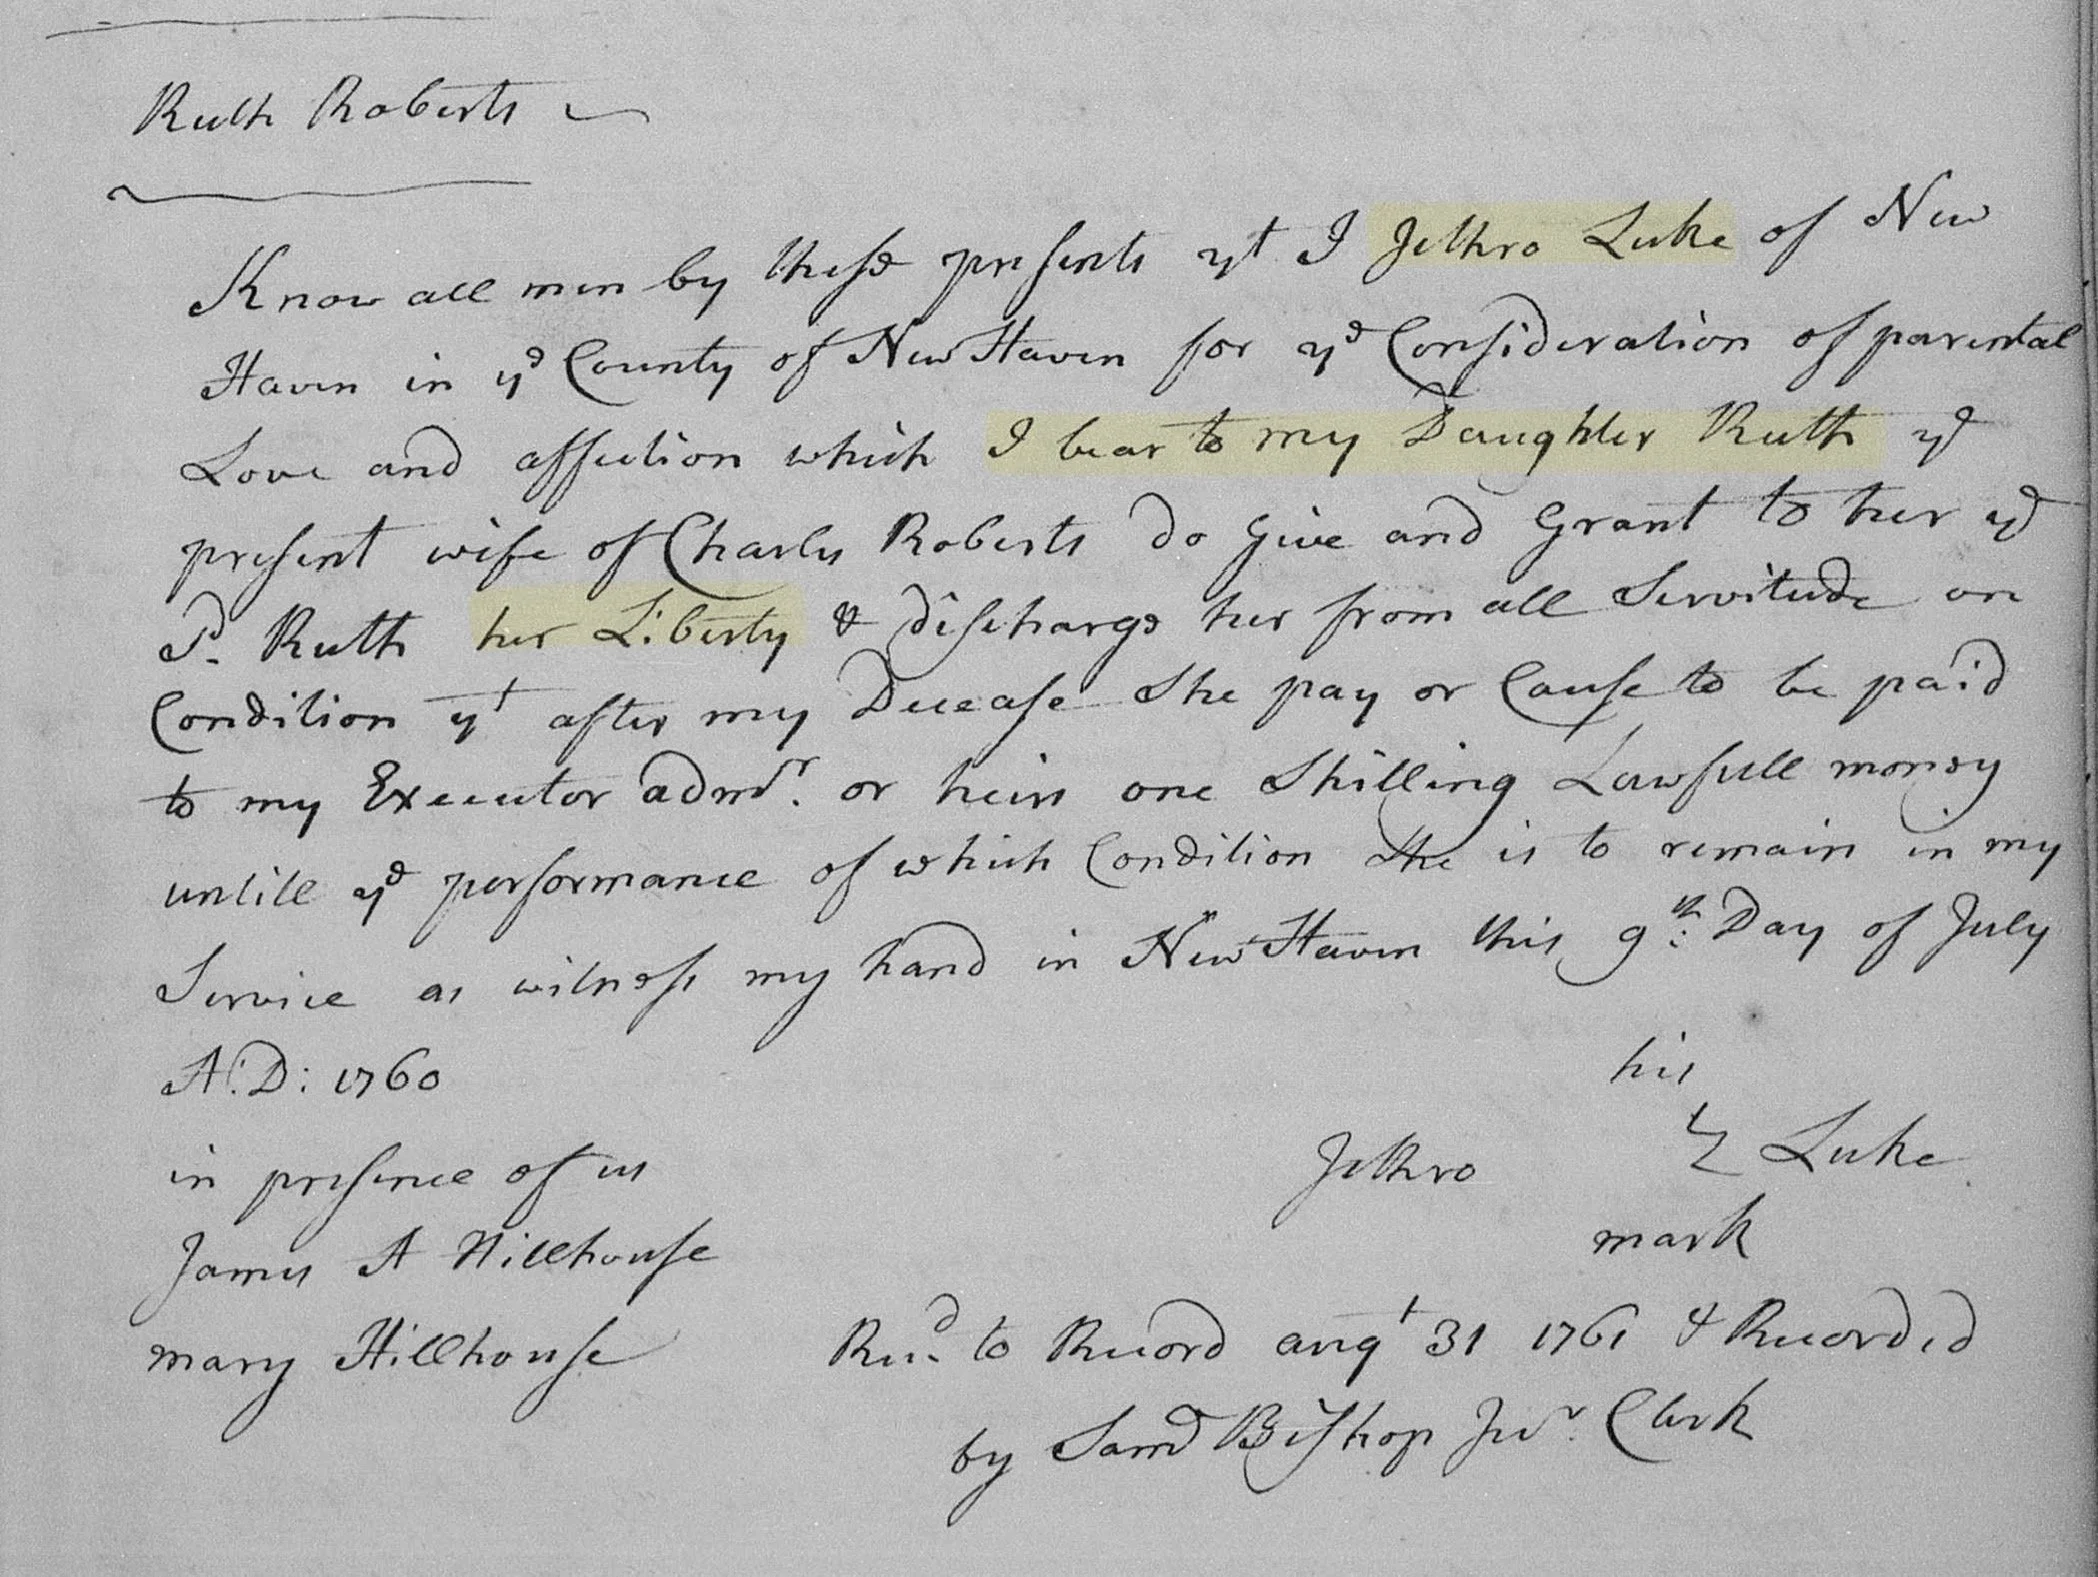 Ruth Roberts
Know all men by these presents yt I Jethro Luke of New
Haven in ye County of New Haven for ye Consideration of parental
Love and affection which I bear to my Daughter Ruth ye
present wife of Charles Roberts do Give and Grant to her ye
Sd. Ruth her Liberty & discharge her from all Servitude on
Condition yt after my Decease She pay or Cause to be paid
to my Executor admr. or heirs one Shilling Lawfull money
untill ye performance of which Condition She is to remain in my
Service as witness my hand in New Haven this 9th: Day of July
A:D: 1760
his
in presence of us
Jethro Luke
mark
James A Hillhouse
mary Hillhouse
Recd. to Record augt 31 1761 & Recorded
by Saml Bishop Junr. Clerk